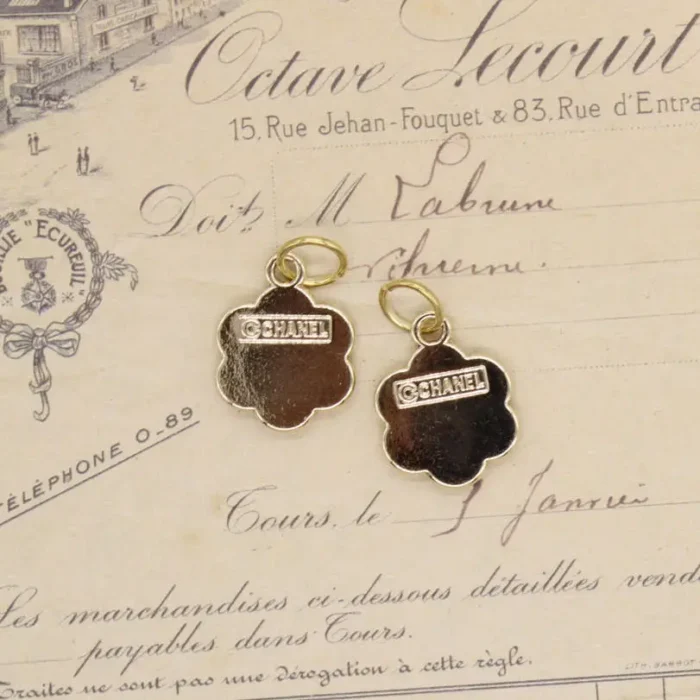 Octave Lecourt
15, Rue Jehan-Fouquet & 83, Rue d'Entra
Doit M Labrune
©CHANEL
©CHANEL
"ECUREUIL"
TÉLÉPHONE 0-89
Tours, le 1 Janvier
Les marchandises ci-dessous détaillées vend
payables dans Tours.
Traites ne sont pas une dérogation à cette règle.